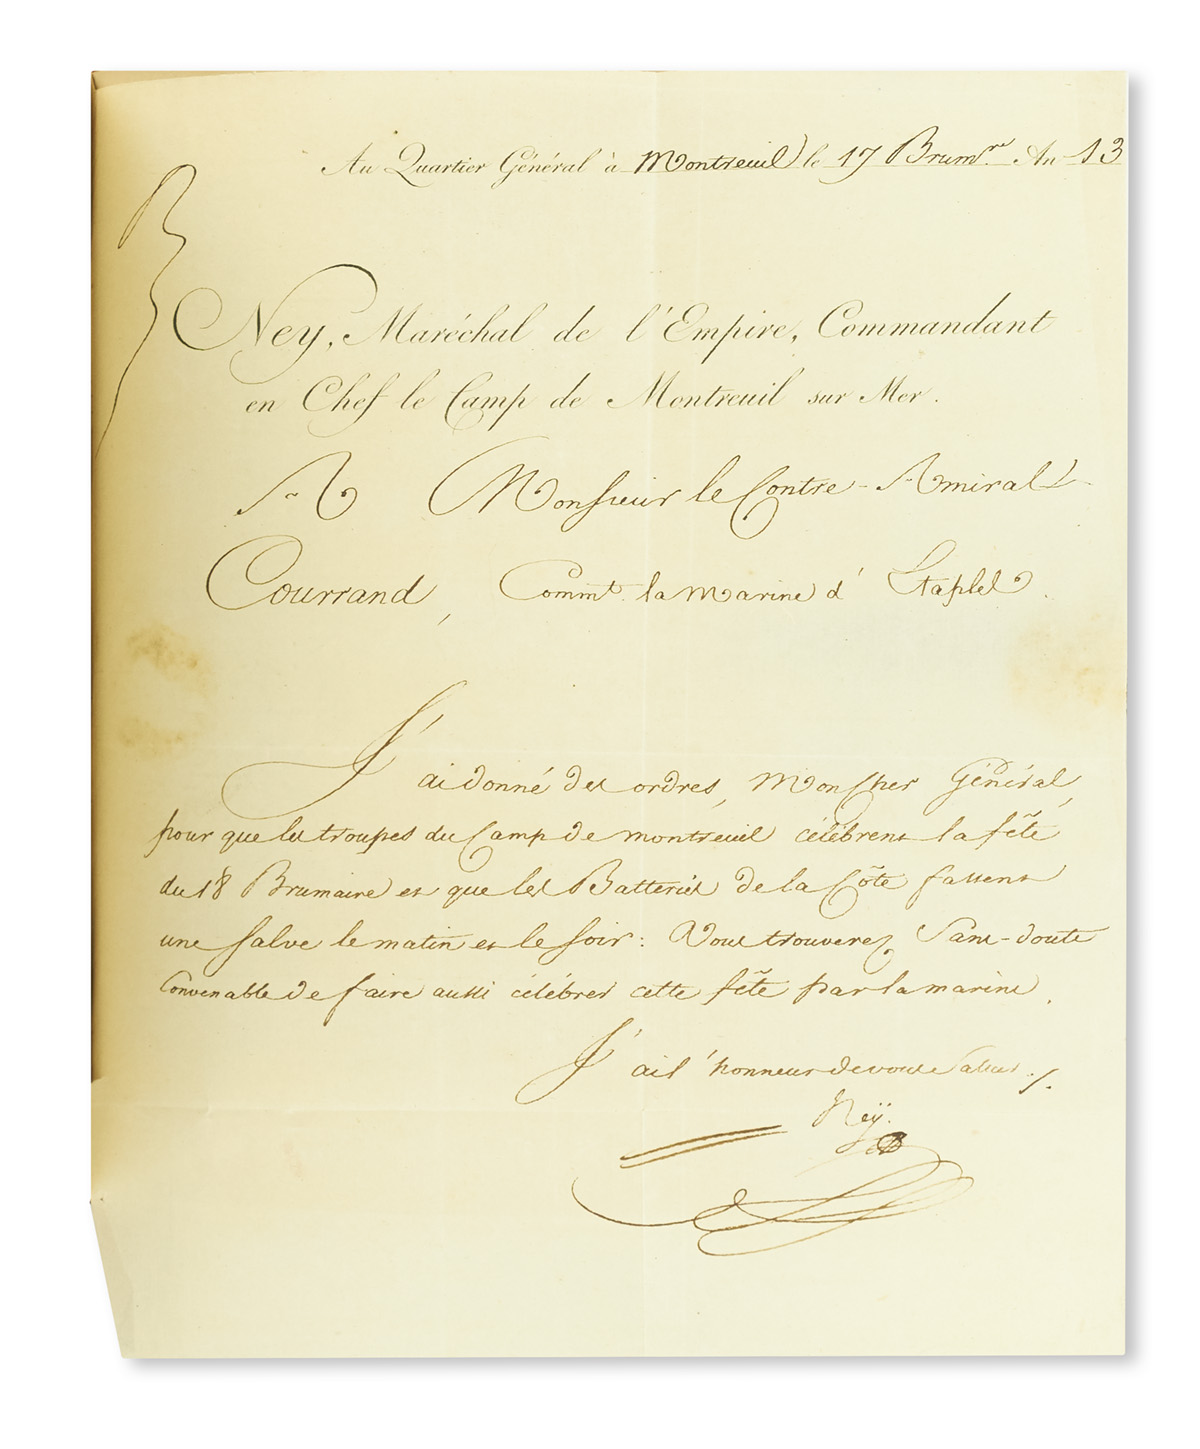 Au Quartier Général à Montreuil le 17 Brum.re An 13
Ney, Maréchal de l'Empire, Commandant
en Chef le Camp de Montreuil sur Mer.
A Monsieur le Contre-Amiral
Courrand, Commt. la marine d'Etaples.
J'ai donné des ordres, Mon Cher Général,
pour que les troupes du Camp de montreuil célèbrent la fête
du 18 Brumaire et que les Batteries de la Côte fassent
une salve le matin et le soir : Vous trouverez Sans-doute
Convenable de faire aussi célébrer cette fête par la marine.
J'ai l'honneur de vous Saluer ./.
Neÿ.